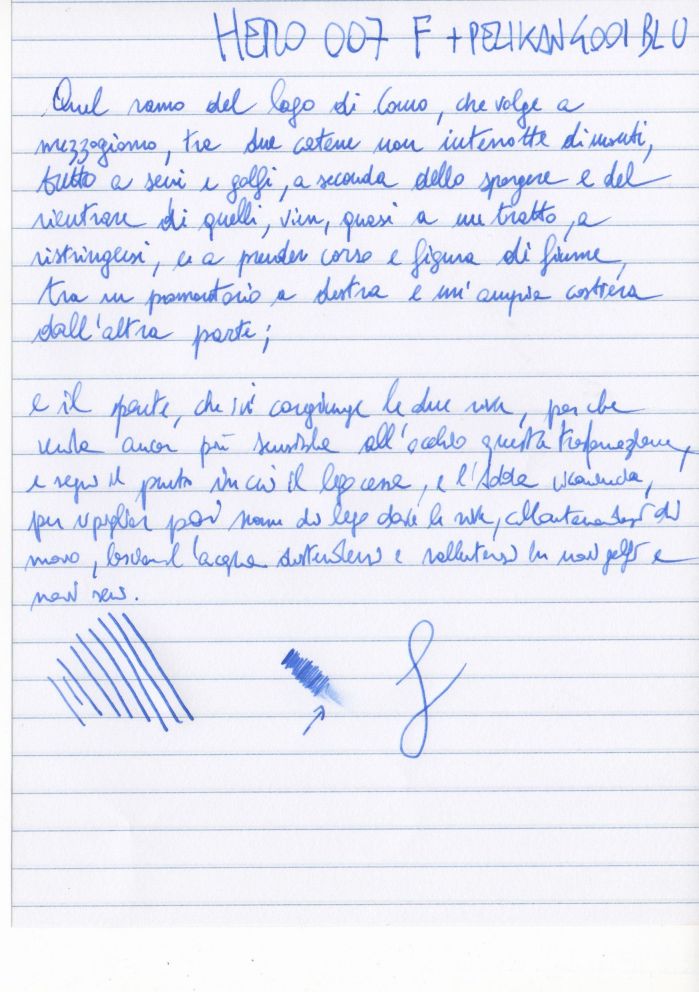 HERO 007 F + PELIKAN 4001 BLU
Quel ramo del lago di Como, che volge a
mezzogiorno, tra due catene non interrotte di monti,
tutto a seni e golfi, a seconda dello sporgere e del
rientrare di quelli, vien, quasi a un tratto, a
ristringersi, e a prender corso e figura di fiume,
tra un promontorio a destra e un'ampia costiera
dall'altra parte;
e il ponte, che ivi congiunge le due rive, par che
renda ancor più sensibile all'occhio questa trasformazione,
e segni il punto in cui il lago cessa, e l'Adda rincomincia,
per ripigliar poi nome di lago dove le rive, allontanandosi di
nuovo, lascian l'acqua distendersi e rallentarsi in novi golfi e
novi seni.